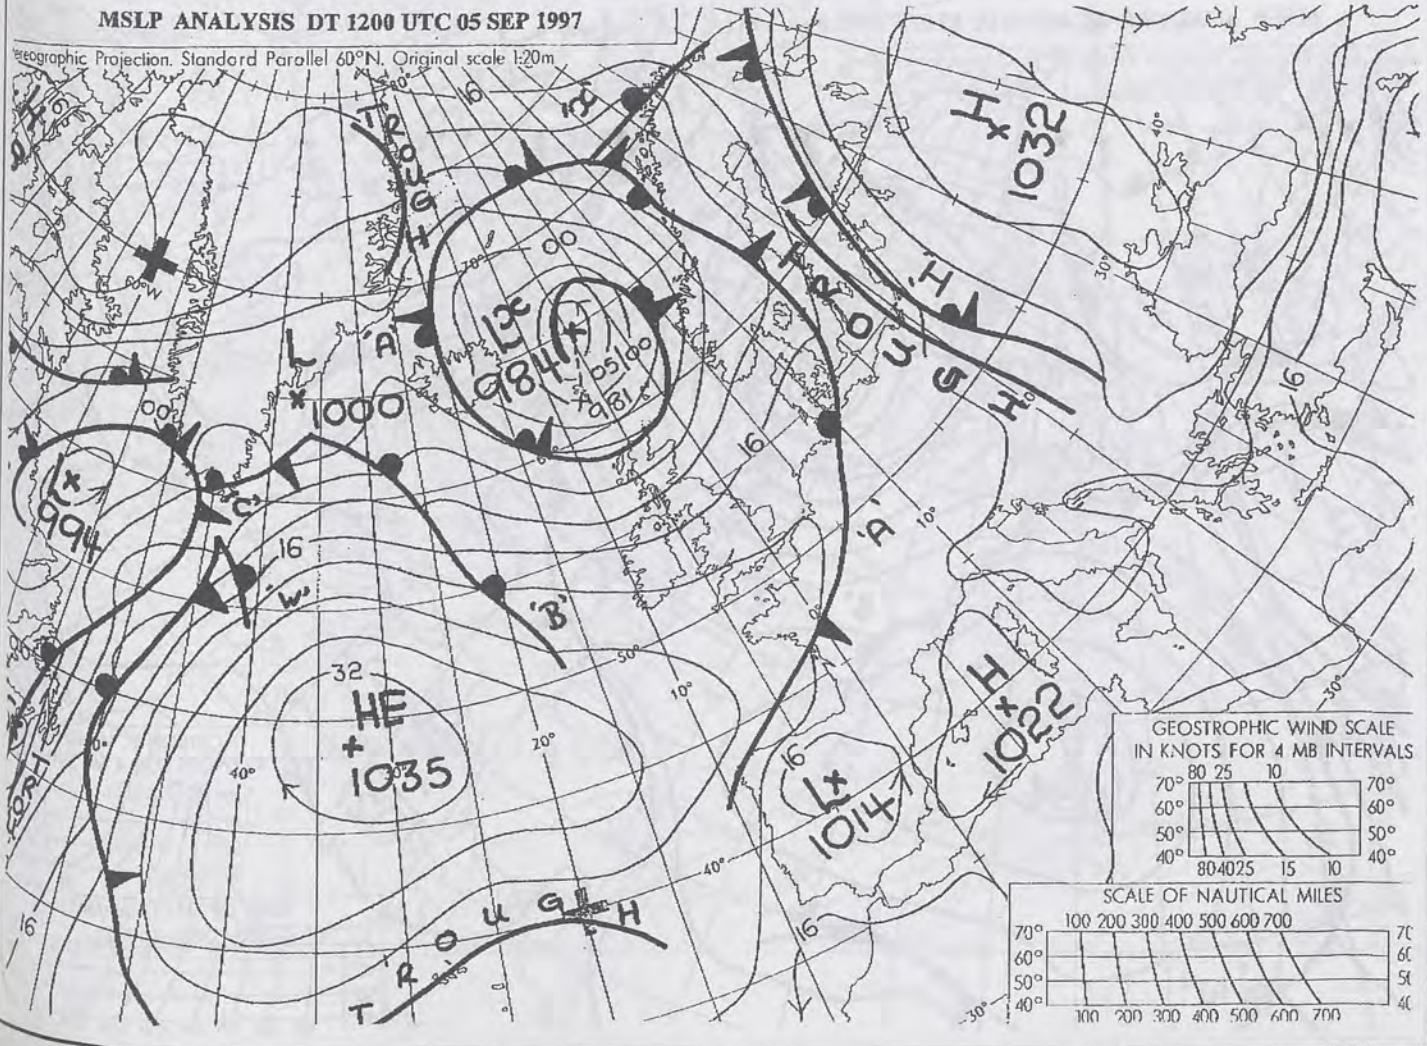 MSLP ANALYSIS DT 1200 UTC 05 SEP 1997
ereographic Projection. Standard Parallel 60°N. Original scale 1:20m
16
TROUGH
H
1032
40°
30°
00
'H'
TROUGH
L
'A'
984
05100
981
L
1000
00
16
16
L
994
'C'
16
'W'
'B'
'A'
10°
50°
32
HE
1035
10°
20°
40°
H
1022
30°
16
L
1014
40°
16
16
TROUGH
30°
GEOSTROPHIC WIND SCALE
IN KNOTS FOR 4 MB INTERVALS
80 25 10
70° 70°
60° 60°
50° 50°
40° 40°
80 40 25 15 10
SCALE OF NAUTICAL MILES
100 200 300 400 500 600 700
70° 70
60° 60
50° 50
40° 40
100 200 300 400 500 600 700